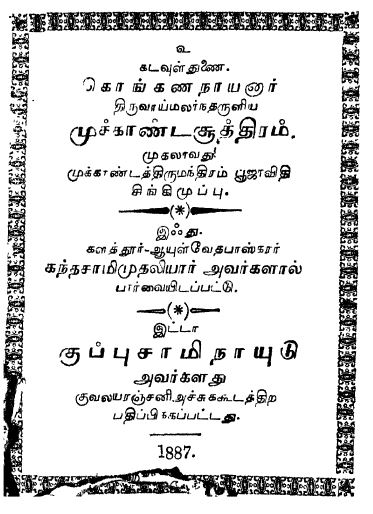 உ
கடவுள்துணை.
கொங்கணநாயனார்
திருவாய்மலர்ந்தருளிய
முச்காண்டசூத்திரம்.
முதலாவது
முக்காண்டத்திருமந்திரம் பூஜாவிதி
சிங்கிமுப்பு.
இஃது.
களத்தூர்-ஆயுள்வேதபாஸ்கரர்
கந்தசாமிமுதலியார் அவர்களால்
பார்வையிடப்பட்டு.
இட்டா
குப்புசாமிநாயுடு
அவர்களது
குவலயாஞ்சனி,அச்சுக்கூடத்திற
பதிப்பிக்கப்பட்டது.
1887.